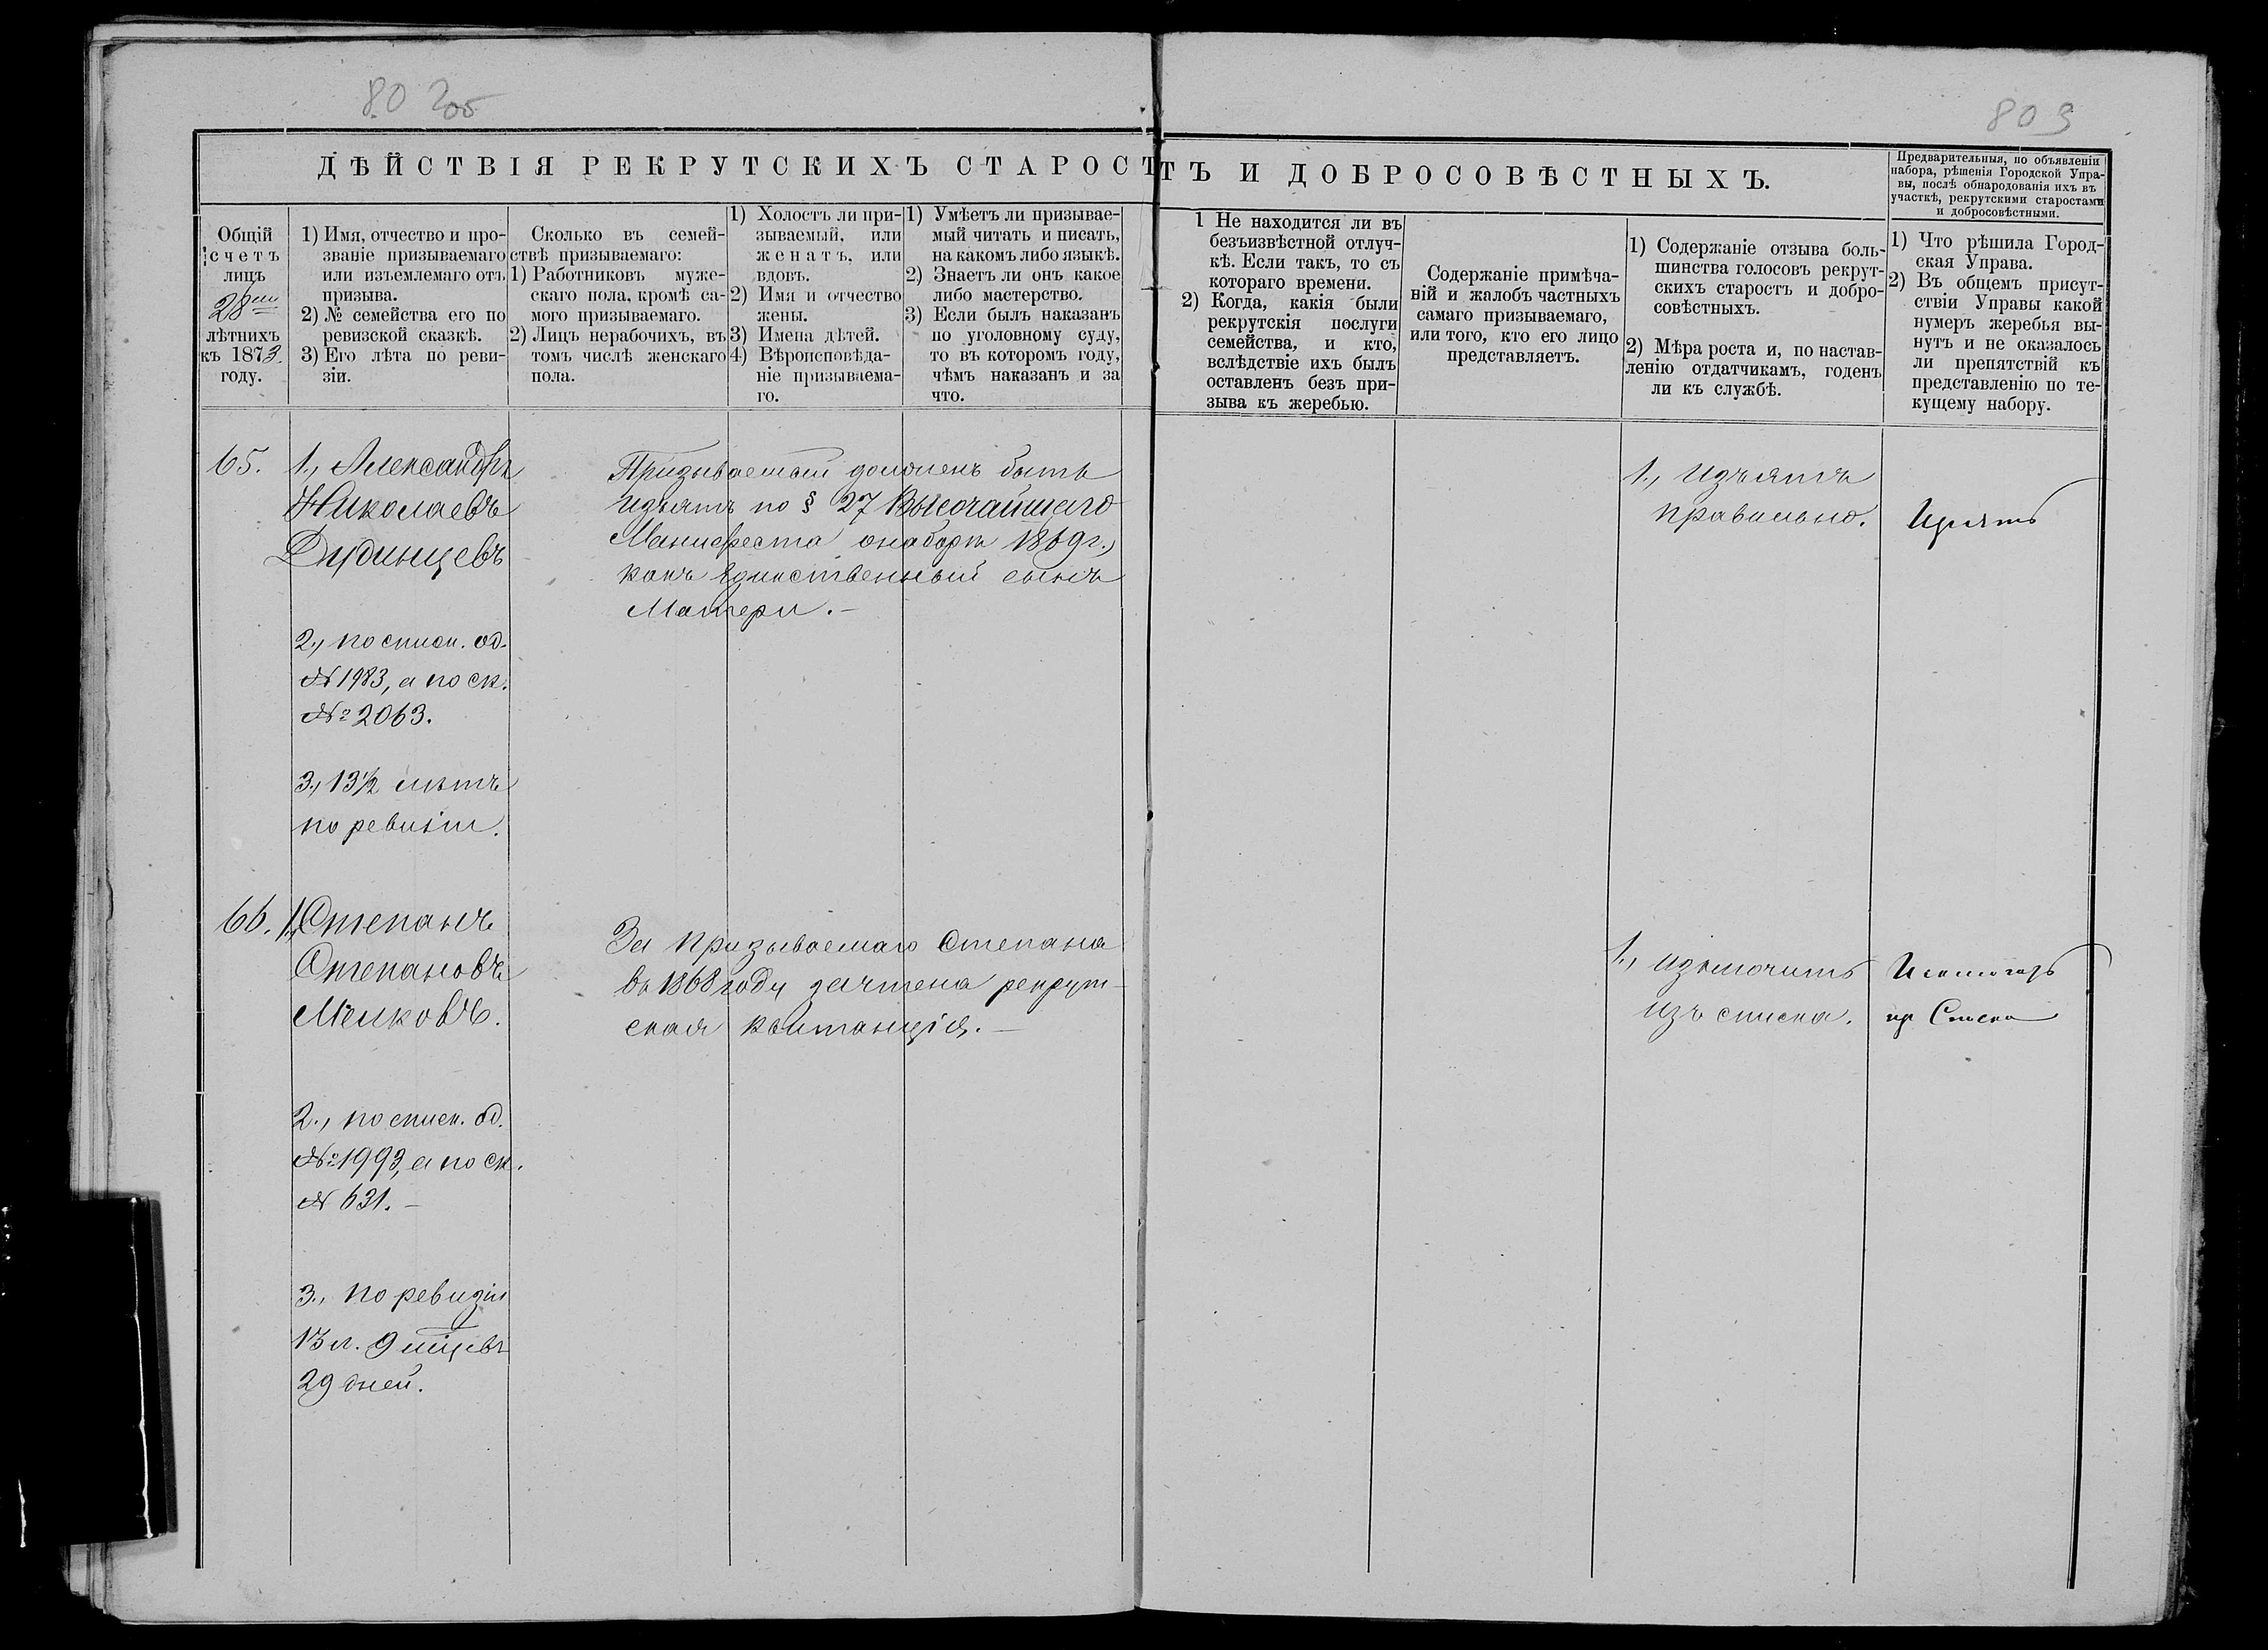 80 205
809
ДѢЙСТВІЯ РЕКРУТСКИХЪ СТАРОСТЪ И ДОБРОСОВѢСТНЫХЪ.
Предварительныя, по объявленіи
набора, рѣшенія Городской Упра-
вы, послѣ обнародованія ихъ въ
участкѣ, рекрутскими старостами
и добросовѣстными.
Общій
счетъ
лицъ
28ми
лѣтнихъ
къ 1873
году.
1) Имя, отчество и про-
званіе призываемаго
или изъемлемаго отъ
призыва.
2) № семейства его по
ревизской сказкѣ.
3) Его лѣта по реви-
зіи.
Сколько въ семей-
ствѣ призываемаго:
1) Работниковъ муже-
скаго пола, кромѣ са-
мого призываемаго.
2) Лицъ нерабочихъ, въ
томъ числѣ женскаго
пола.
1) Холостъ ли при-
зываемый, или
женатъ, или
вдовъ.
2) Имя и отчество
жены.
3) Имена дѣтей.
4) Вѣроисповѣда-
ніе призываема-
го.
1) Умѣетъ ли призывае-
мый читать и писать,
на какомъ либо языкѣ.
2) Знаетъ ли онъ какое
либо мастерство.
3) Если былъ наказанъ
по уголовному суду,
то въ которомъ году,
чѣмъ наказанъ и за
что.
1 Не находится ли въ
безъизвѣстной отлуч-
кѣ. Если такъ, то съ
котораго времени.
2) Когда, какія были
рекрутскія послуги
семейства, и кто,
вслѣдствіе ихъ былъ
оставленъ безъ при-
зыва къ жеребью.
Содержаніе примѣча-
ній и жалобъ частныхъ
самаго призываемаго,
или того, кто его лицо
представляетъ.
1) Содержаніе отзыва боль-
шинства голосовъ рекрут-
скихъ старостъ и добро-
совѣстныхъ.
2) Мѣра роста и, по настав-
ленію отдатчикамъ, годенъ
ли къ службѣ.
1) Что рѣшила Город-
ская Управа.
2) Въ общемъ присут-
ствіи Управы какой
нумеръ жеребья вы-
нутъ и не оказалось
ли препятствій къ
представленію по те-
кущему набору.
65.
1., Александръ
Николаевъ
Дудинцевъ
2., по списк. од.
№ 1983, а по ск.
№ 2063.
3., 13½ лѣтъ
по ревизіи.
Призываемый долженъ быть
изъятъ по § 27 Высочайшаго
Манифеста о наборѣ 1869 г.,
какъ единственный сынъ
Матери. —
1., Изъятъ
правильно.
Изъять
66.
1., Степанъ
Степановъ
Мелковъ.
2., по списк. од.
№ 1993, а по ск.
№ 631. —
3., по ревизіи
13 л. 9 мѣцевъ
29 дней.
За призываемаго Степана
въ 1868 году зачтена рекрут-
ская квитанція. —
1., исключить
изъ списка.
Исключить
из Списка